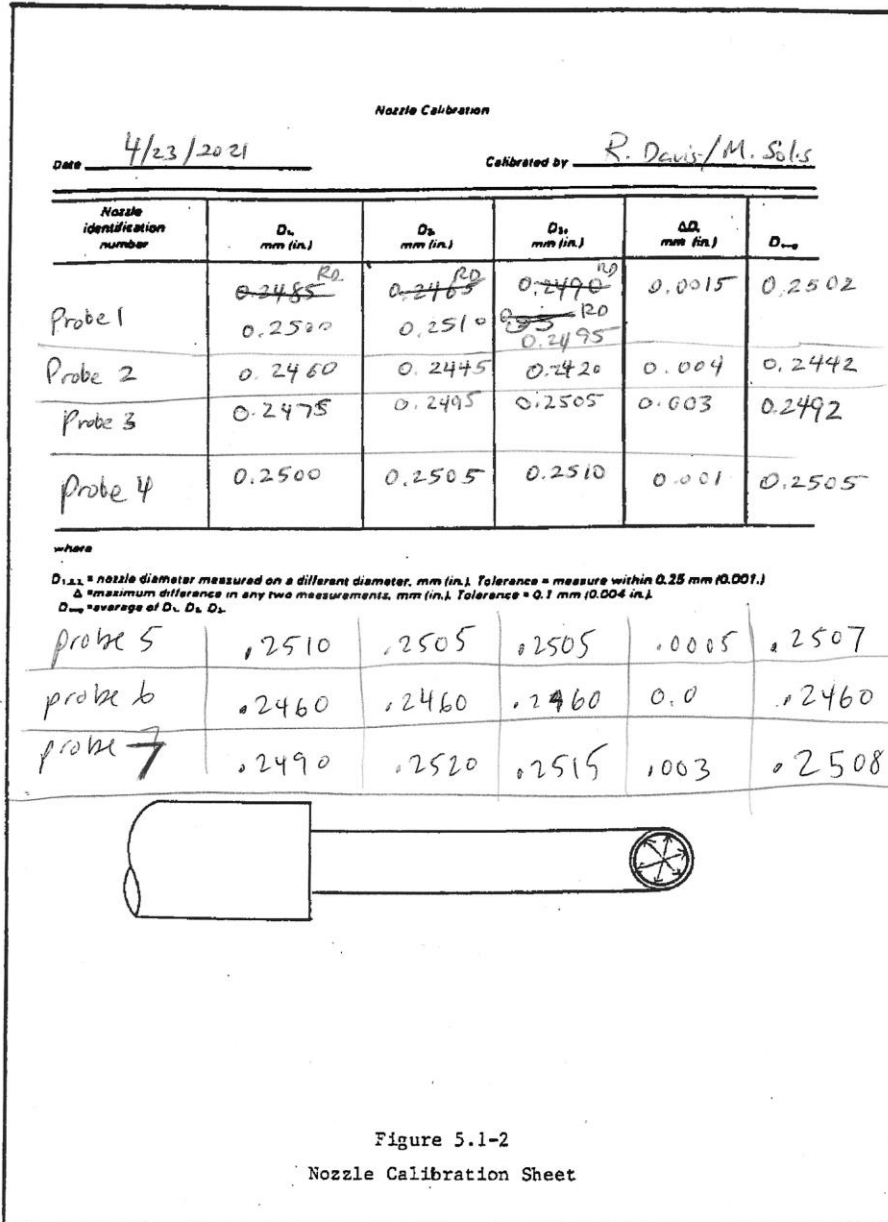 Nozzle Calibration
Date 4/23/2021 Calibrated by R. Davis/M. Solis
Nozzle identification number D₁, mm (in.) D₂, mm (in.) D₃, mm (in.) ΔD, mm (in.)
RD RD RD
0.2485 0.2465 0.2490 0.0015 0.2502
Probe 1 0.2500 0.2510 RD
0.2495
Probe 2 0.2460 0.2445 0.2420 0.004 0.2442
Probe 3 0.2475 0.2495 0.2505 0.003 0.2492
Probe 4 0.2500 0.2505 0.2510 0.001 0.2505
where
= nozzle diameter measured on a different diameter, mm (in.). Tolerance = measure within 0.25 mm (0.001.)
Δ = maximum difference in any two measurements, mm (in.). Tolerance = 0.1 mm (0.004 in.).
= average of D₁, D₂, D₃.
probe 5 .2510 .2505 .2505 .0005 .2507
probe 6 .2460 .2460 .2460 0.0 .2460
probe 7 .2490 .2520 .2515 .003 .2508
Figure 5.1-2
Nozzle Calibration Sheet